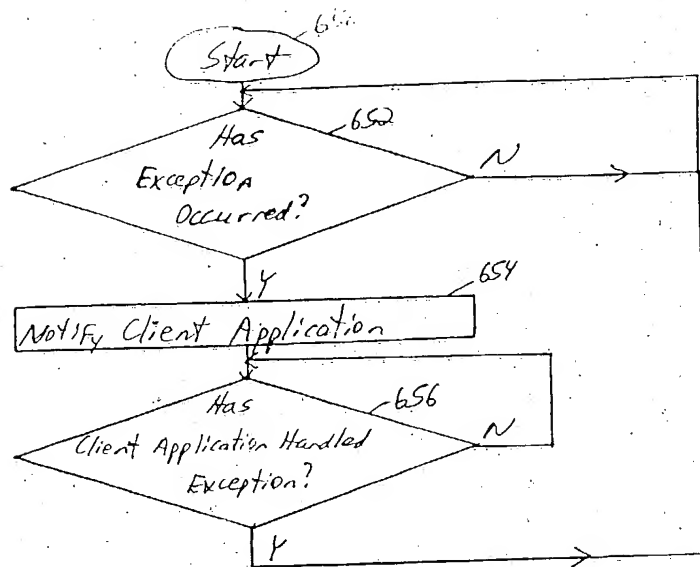 Start
652
Has
Exception
Occurred?
N
Y
654
Notify Client Application
656
Has
Client Application Handled
Exception?
N
Y